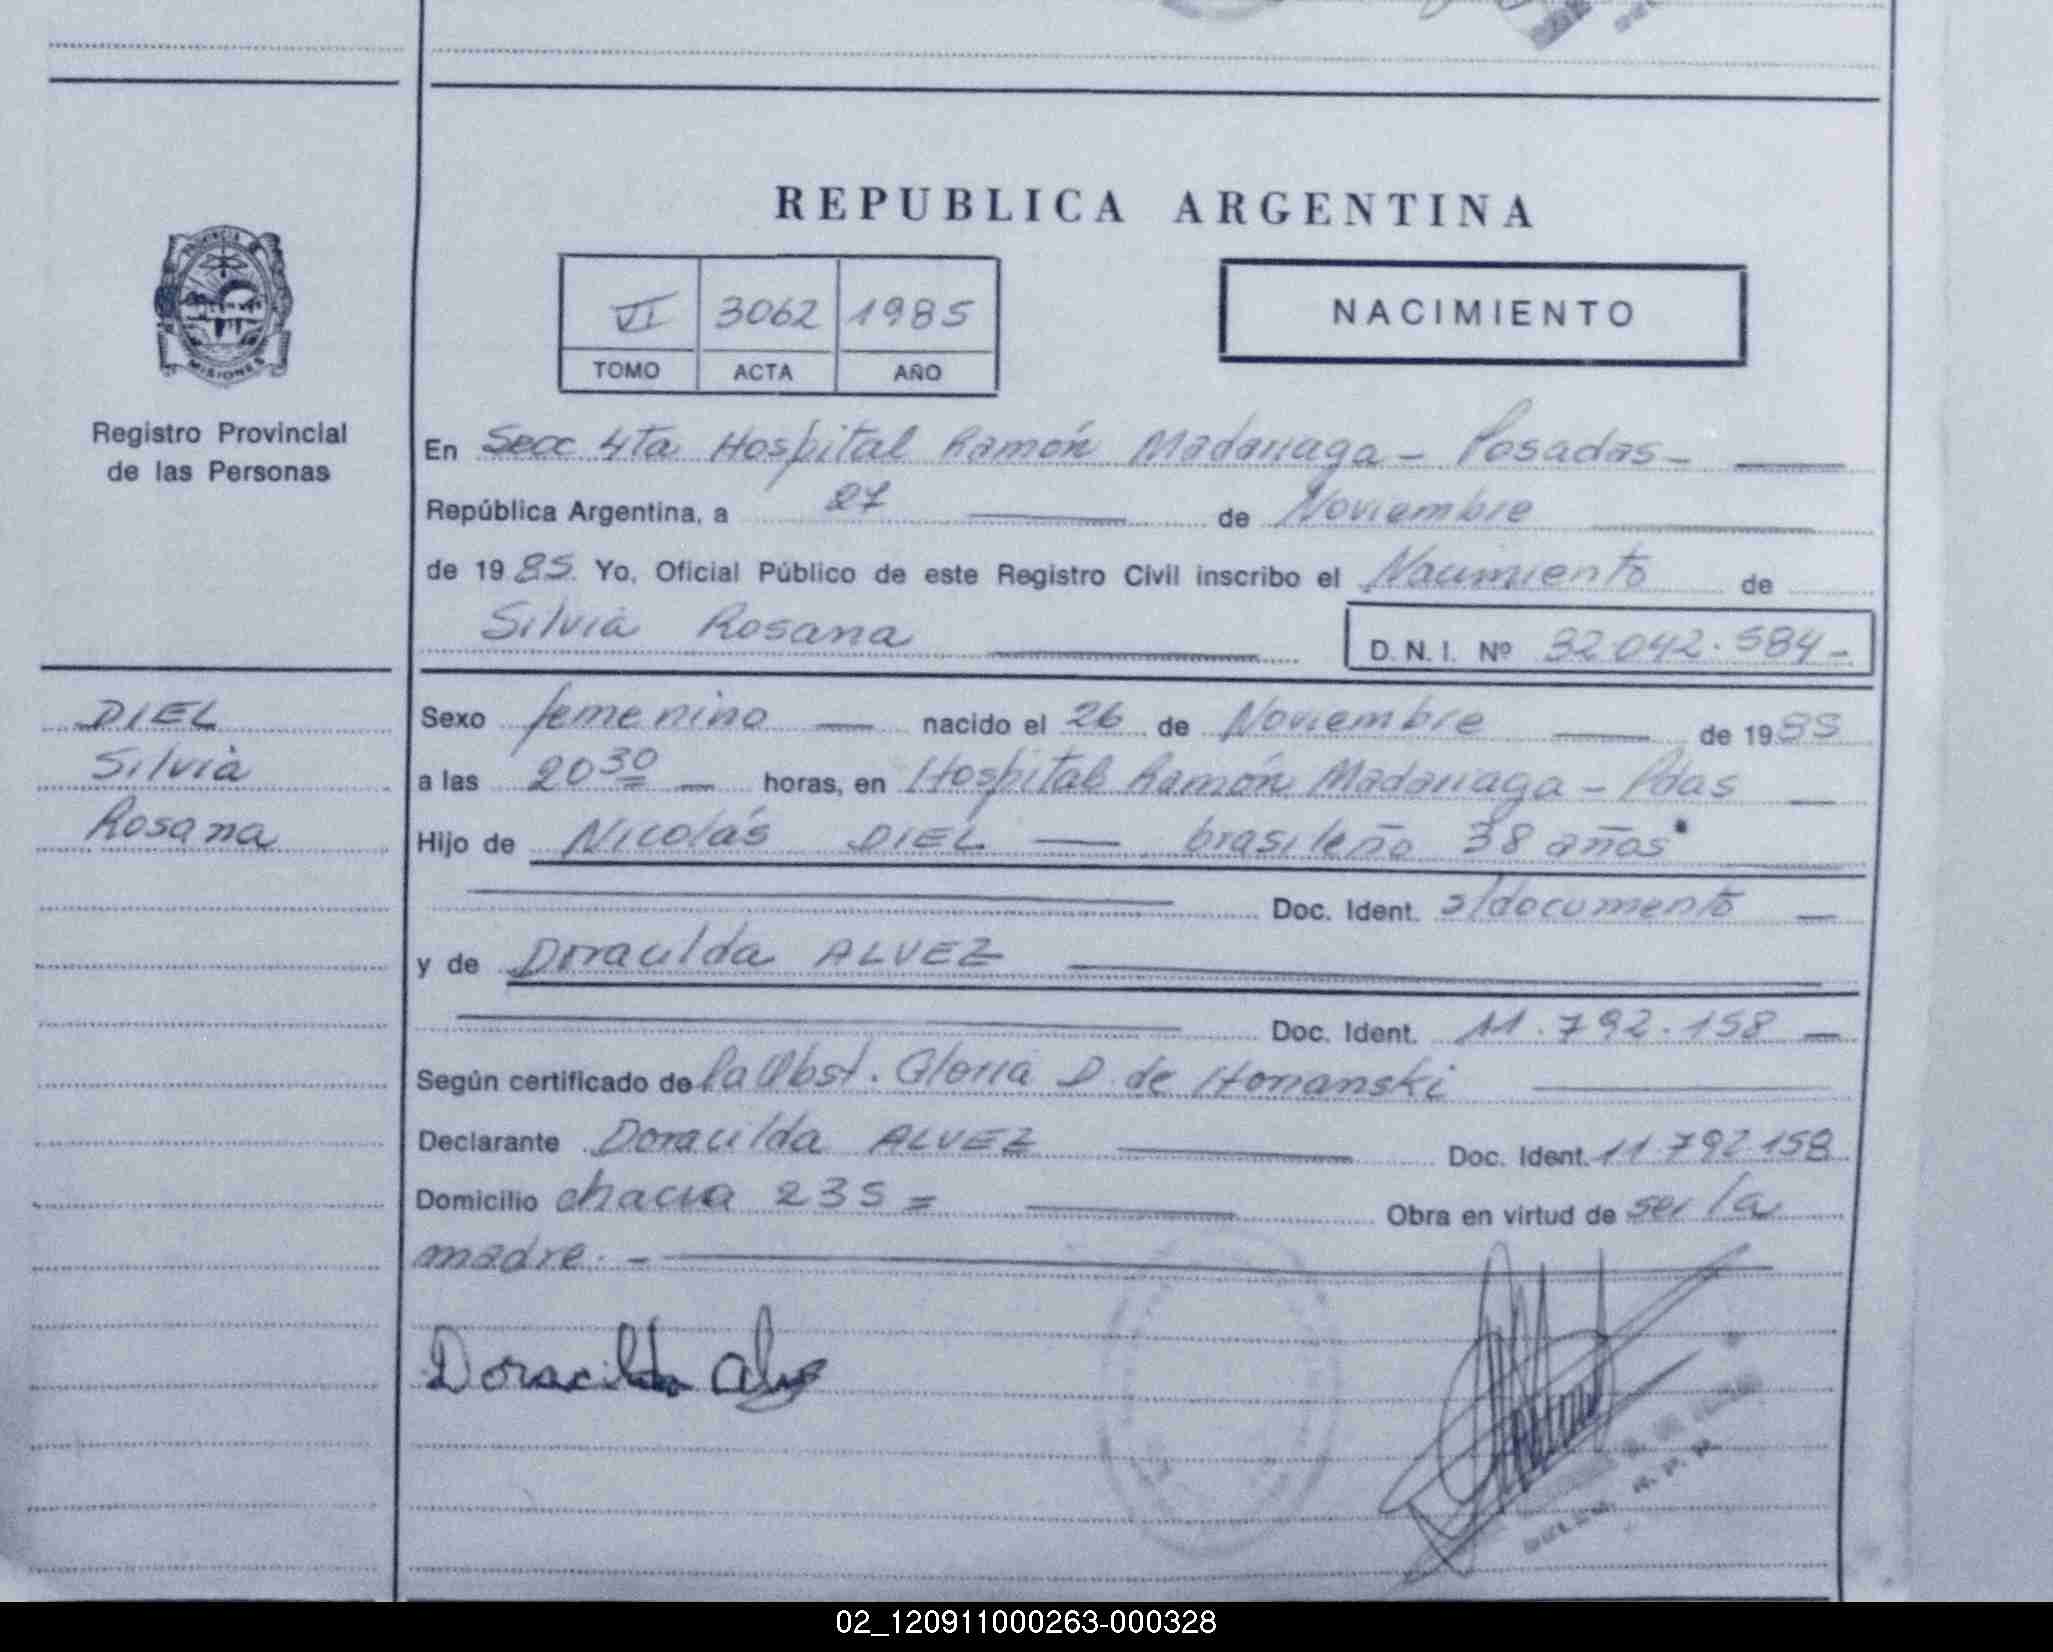 REPUBLICA ARGENTINA
VI 3062 1985
TOMO ACTA AÑO
NACIMIENTO
PROVINCIA DE
MISIONES
Registro Provincial
de las Personas
En Secc 4ta Hospital Ramón Madariaga - Posadas -
República Argentina, a 27 de Noviembre
de 1985. Yo, Oficial Público de este Registro Civil inscribo el Nacimiento de
Silvia Rosana
D. N. I. Nº 32 042.584-
DIEL
Silvia
Rosana
Sexo femenino nacido el 26 de Noviembre de 1985
a las 20 30 horas, en Hospital Ramón Madariaga - Pdas
Hijo de Nicolás DIEL brasileño 38 años
Doc. Ident. s/documento
y de Doracilda ALVEZ
Doc. Ident. 11.792.158
Según certificado de la Obst. Gloria D. de Horianski
Declarante Doracilda ALVEZ Doc. Ident. 11.792.158
Domicilio chacra 235 = Obra en virtud de ser la
madre. -
Doracilda
02_120911000263-000328